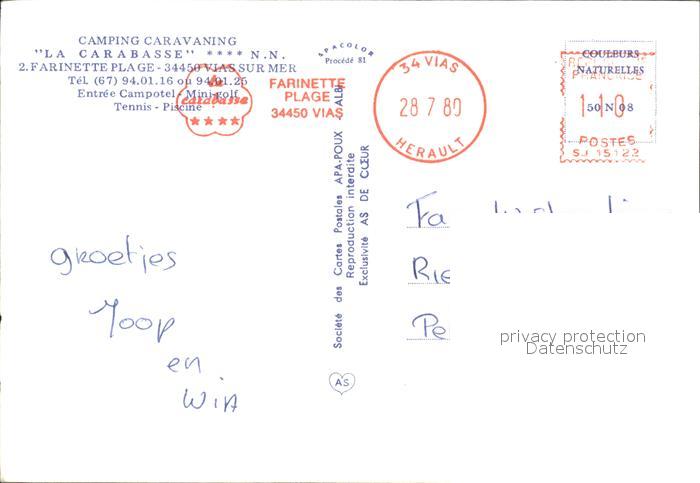 CAMPING CARAVANING
"LA CARABASSE" **** N.N.
2.FARINETTE PLAGE - 34450 VIAS SUR MER
Tél (67) 94.01.16 ou 94.01.25
Entrée Campotel - Mini-golf
Tennis - Piscine
la
carabasse
★★★★
FARINETTE
PLAGE
34450 VIAS
SPACOLOR
Procédé 81
34 VIAS
28 7 80
HERAULT
COULEURS
NATURELLES
50 N 08
FRANÇAISE
110
POSTES
SJ 15122
Société des Cartes Postales APA-POUX - ALBI
Reproduction interdite
Exclusivité AS DE CŒUR
AS
groetjes
Joop
en
Win
Fa
Rie
Pe
privacy protection
Datenschutz